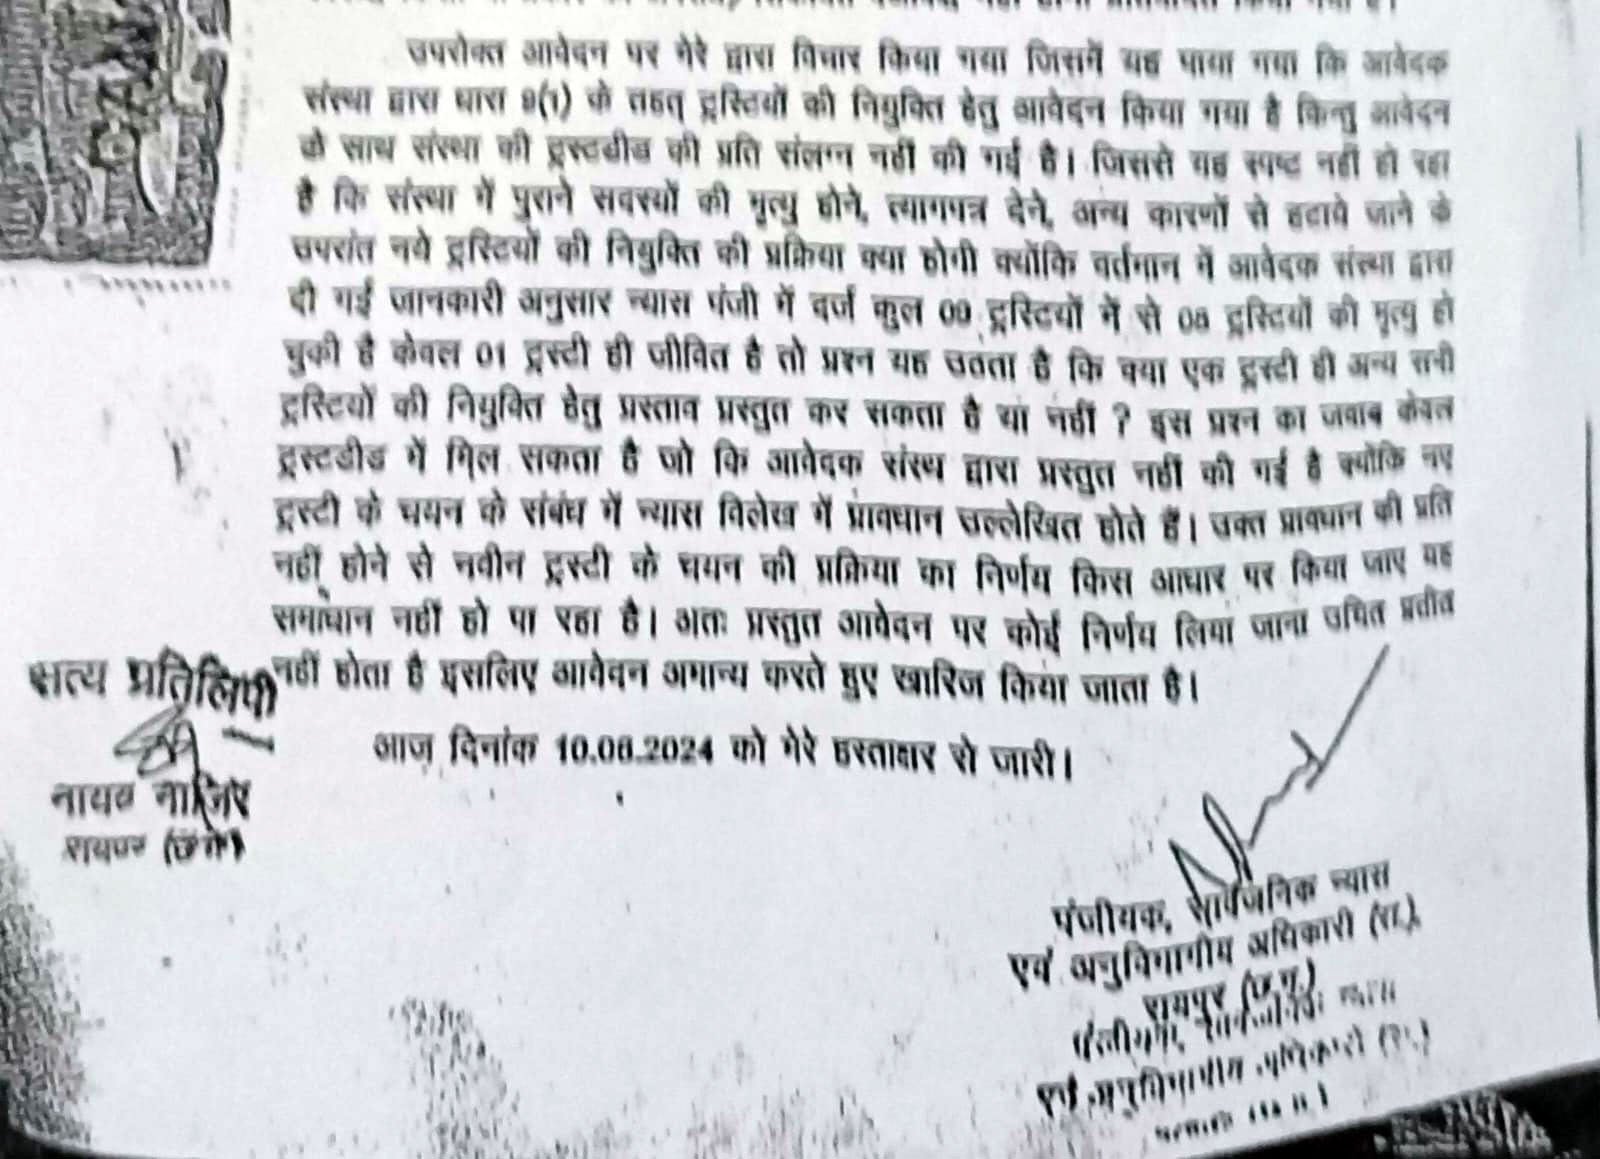 उपरोक्त आवेदन पर मेरे द्वारा विचार किया गया जिसमें यह पाया गया कि आवेदक
संस्था द्वारा धारा 9(1) के तहत् ट्रस्टियों की नियुक्ति हेतु आवेदन किया गया है किन्तु आवेदन
के साथ संस्था की ट्रस्टडीड की प्रति संलग्न नहीं की गई है। जिससे यह स्पष्ट नहीं हो रहा
है कि संस्था में पुराने सदस्यों की मृत्यु होने, त्यागपत्र देने, अन्य कारणों से हटाये जाने के
उपरांत नये ट्रस्टियों की नियुक्ति की प्रक्रिया क्या होगी क्योंकि वर्तमान में आवेदक संस्था द्वारा
दी गई जानकारी अनुसार न्यास पंजी में दर्ज कुल 09 ट्रस्टियों में से 08 ट्रस्टियों की मृत्यु हो
चुकी है केवल 01 ट्रस्टी ही जीवित है तो प्रश्न यह उठता है कि क्या एक ट्रस्टी ही अन्य सभी
ट्रस्टियों की नियुक्ति हेतु प्रस्ताव प्रस्तुत कर सकता है या नहीं ? इस प्रश्न का जवाब केवल
ट्रस्टडीड में मिल सकता है जो कि आवेदक संस्थ द्वारा प्रस्तुत नहीं की गई है क्योंकि नए
ट्रस्टी के चयन के संबंध में न्यास विलेख में प्रावधान उल्लेखित होते हैं। उक्त प्रावधान की प्रति
नहीं होने से नवीन ट्रस्टी के चयन की प्रक्रिया का निर्णय किस आधार पर किया जाए यह
समाधान नहीं हो पा रहा है। अतः प्रस्तुत आवेदन पर कोई निर्णय लिया जाना उचित प्रतीत
नहीं होता है इसलिए आवेदन अमान्य करते हुए खारिज किया जाता है।
सत्य प्रतिलिपी
आज दिनांक 10.06.2024 को मेरे हस्ताक्षर से जारी।
नायब नाजिर
रायपुर (छ.ग.)
पंजीयक, सार्वजनिक न्यास
एवं अनुविभागीय अधिकारी (रा.),
रायपुर (छ.ग.)
पंजीयक, सार्वजनिक न्यास
एवं अनुविभागीय अधिकारी (रा.)